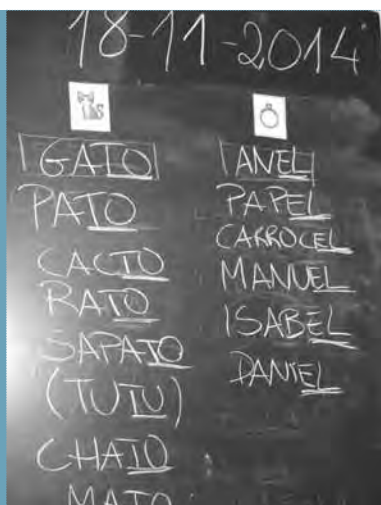 18-11-2014
GATO
PATO
CACTO
RATO
SAPATO
(TUTU)
CHATO
MATO
ANEL
PAPEL
CARROCEL
MANUEL
ISABEL
DANIEL